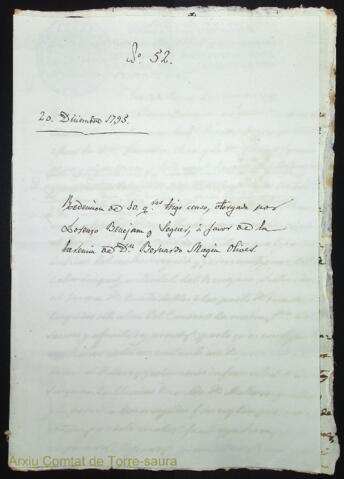 Nº 52.
20. Diciembre 1795.
Redencion de 30 q.tes trigo censo, otorgada por
Lorenzo Benejam y Seguer, á favor de la
herencia de D.n Bernardo Magin Olives.
Arxiu Comtat de Torre-saura